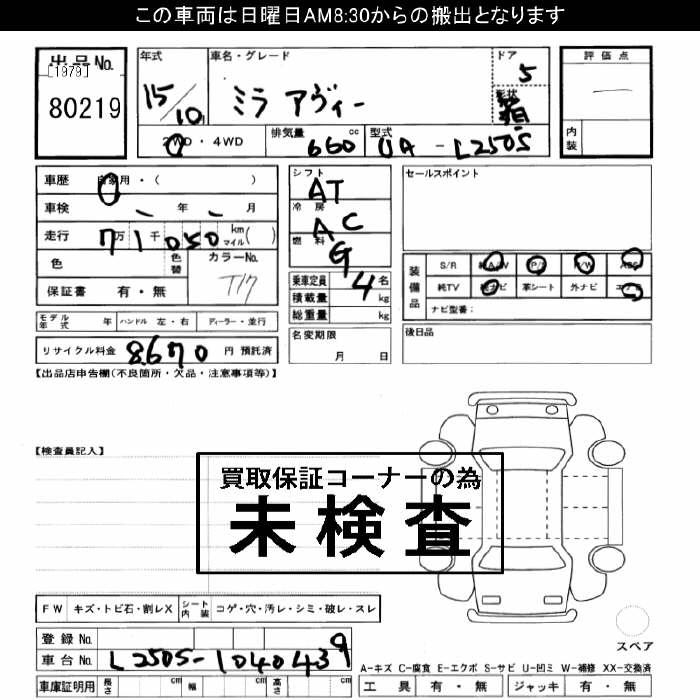 この車両は日曜日AM8:30からの搬出となります
出品No.
[1979]
80219
年式
15/10
車名・グレード
ミラ アヴィー
ドア
5
形状
箱
評価点
内装
2WD・4WD
排気量 660 cc
型式 UA - L250S
車歴 自家用・( )
車検 年 月
走行 7万1千050 km マイル( )
色 色替
カラーNo. T17
保証書 有・無
シフト AT
冷房 AC
燃料 G
乗車定員 4 名
積載量 kg
総重量 kg
名変期限
月 日
セールスポイント
装備品
S/R 純A/W P/S P/W ABS
純TV 純ナビ 革シート 外ナビ エアB
ナビ型番:
後日品
モデル年式 年 ハンドル 左・右 ディーラー・並行
リサイクル料金 8,670 円 預託済
【出品店申告欄(不良箇所・欠品・注意事項等)】
【検査員記入】
買取保証コーナーの為
未検査
FW キズ・トビ石・割レX シート内装 コゲ・穴・汚レ・シミ・破レ・スレ
登録No.
車台No. L250S-1040439
車庫証明用 長さ cm 幅 cm 高さ cm
スペア
A-キズ C-腐食 E-エクボ S-サビ U-凹ミ W-補修 XX-交換済
工具 有・無 ジャッキ 有・無